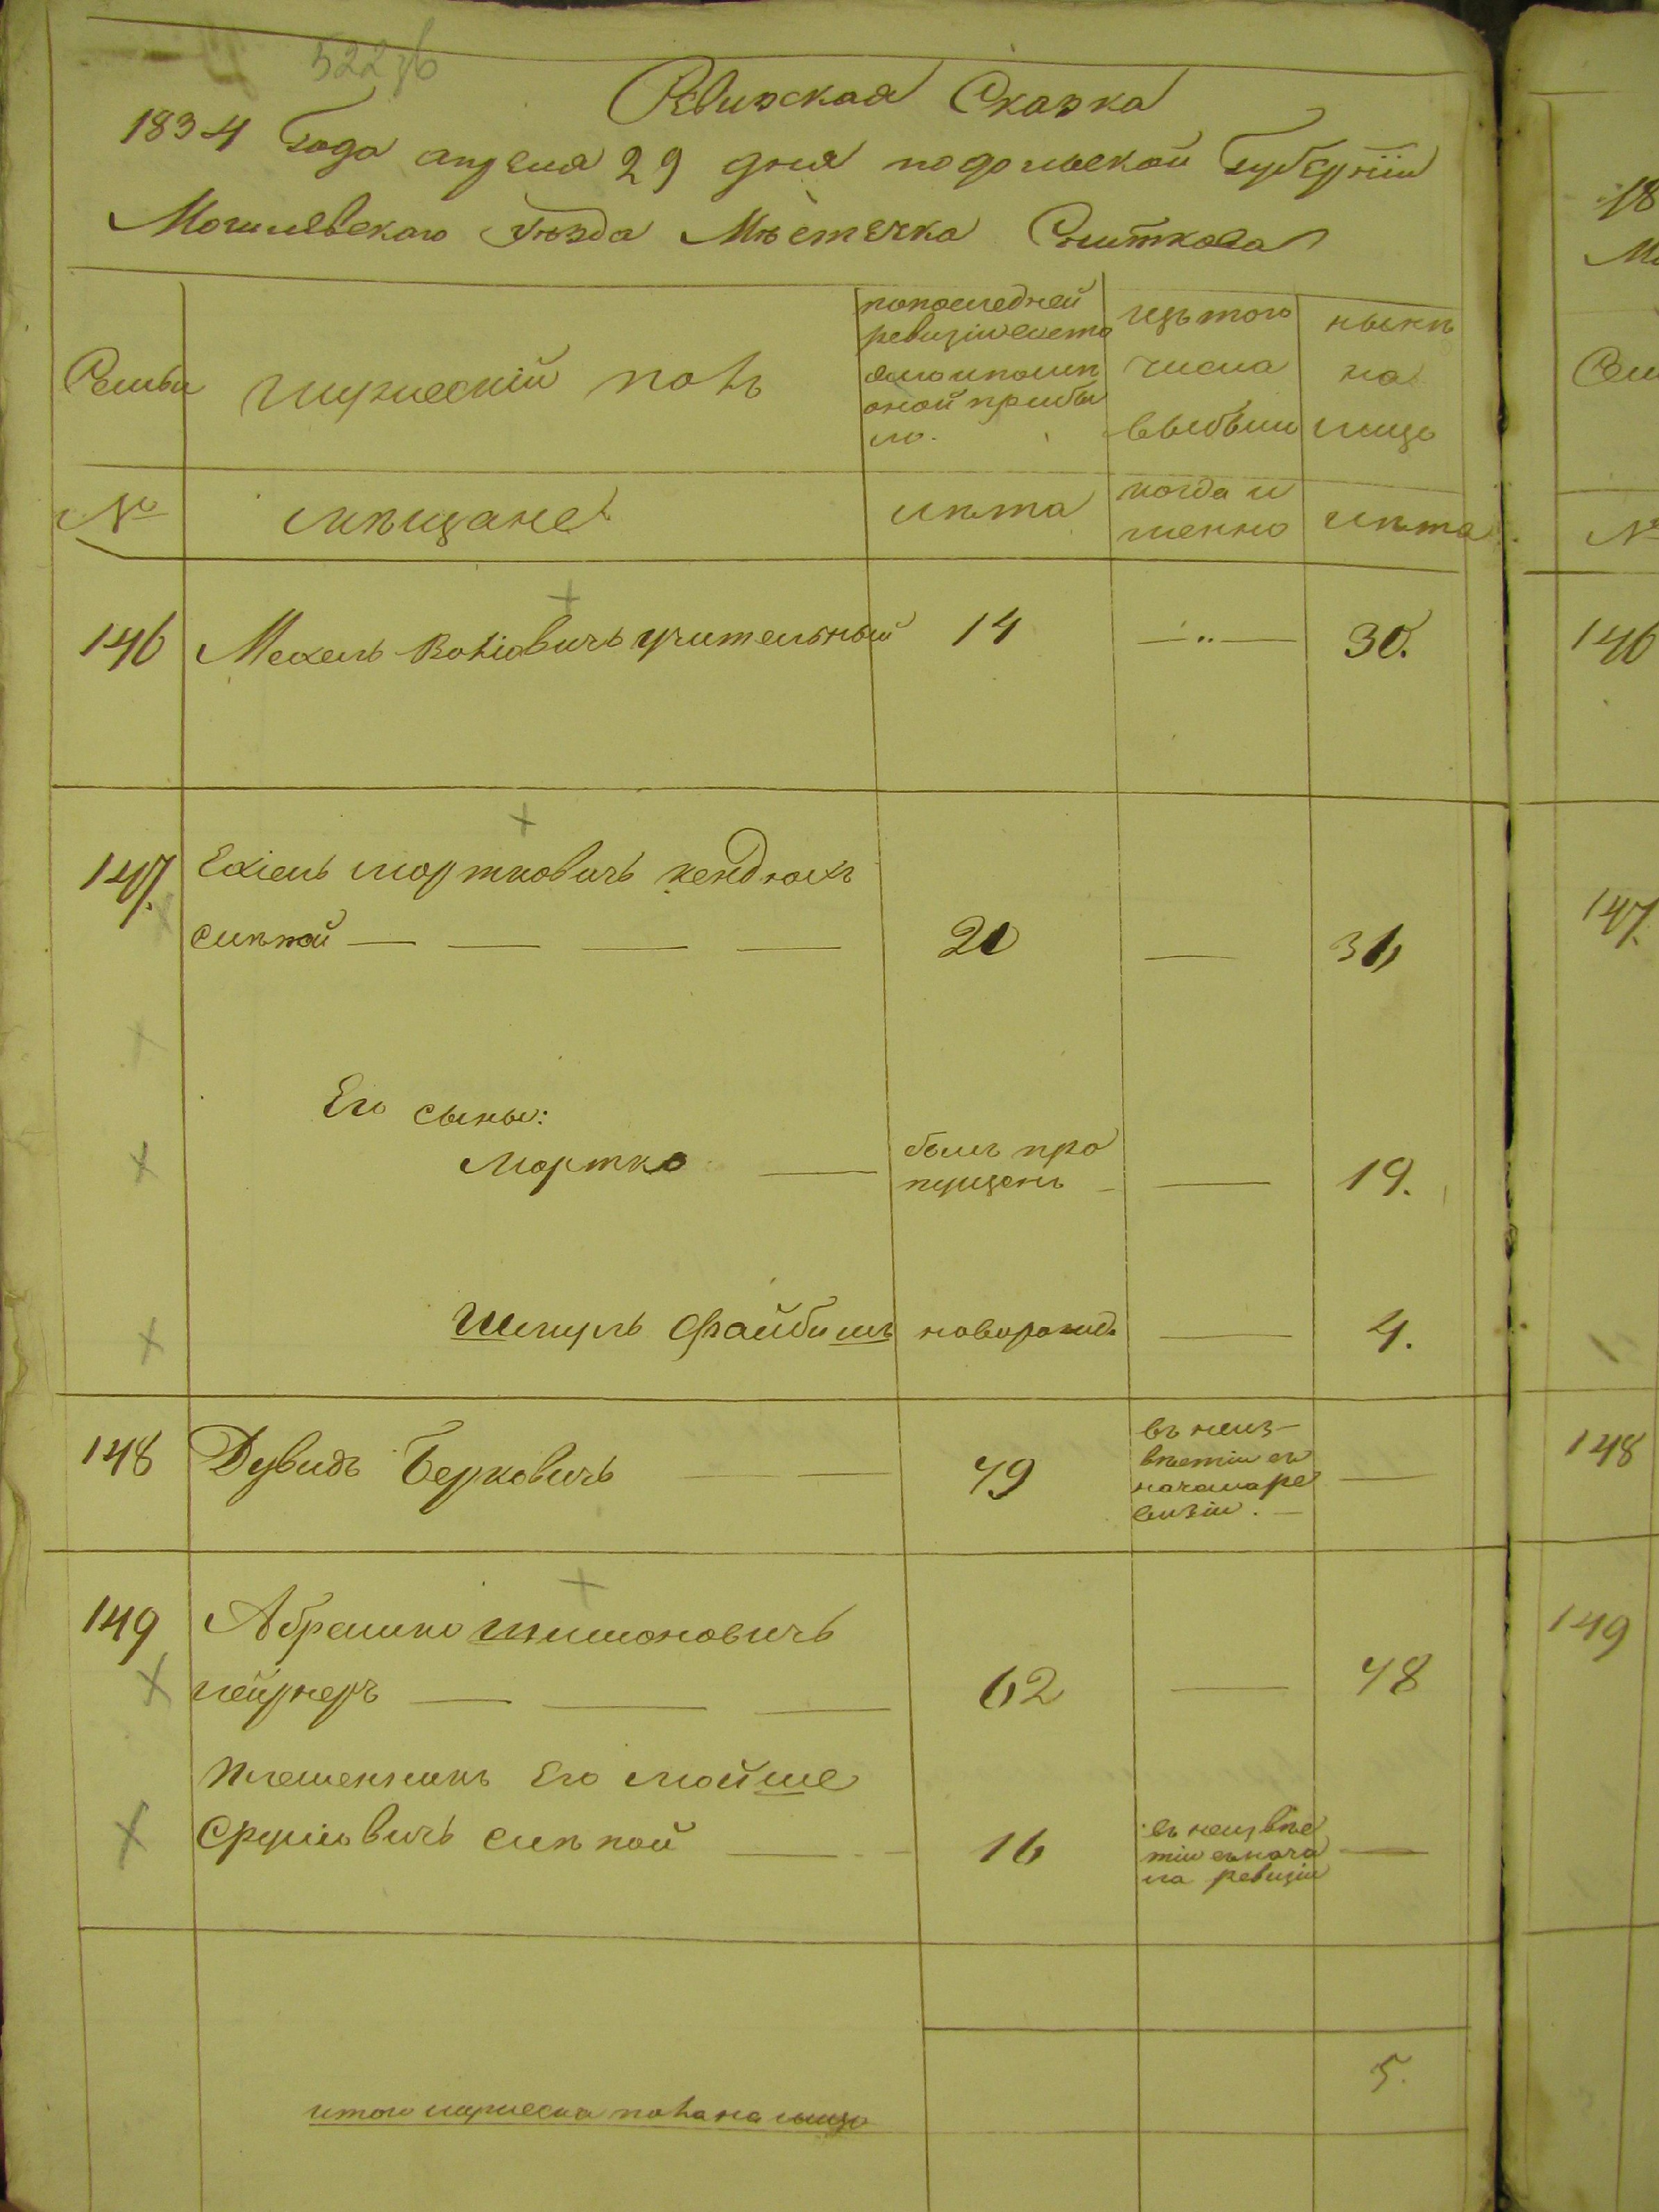 522 зб
Ревизская Сказка
1834 Года апреля 29 дня подольской Губернїи
Могилевского уѣзда Мѣстечка Сниткова
Семьи
мужескїй полъ
попоследней
ревизїи состо
яло и послѣ
оной прибы
ло.
изъ того
числа
выбыли
нынѣ
на
лицо
№
мѣщане
лѣта
когда и
менно
лѣта
146 Мехель учительный 14 — 30.
147. Ехїель мортковичь кендюхъ
слѣпой 20 — 36
Его сыны:
Мортко
былъ про
пущенъ — 19.
Шмуль Файбишъ новорожд. — 4.
148 Дувидъ Берковичь 49
въ неиз-
вѣстїи съ
начала ре
визїи. —
149 Абрамко Шимоновичь
лейрнеръ 62 — 78
племенникъ Его мойше
Сруліовичь слѣпой 16
въ неизвѣс
тїи съ нача
ла ревизїи —
5.
итого мужеска пола на лицо
18
М
Сем
№
146
147.
148
149